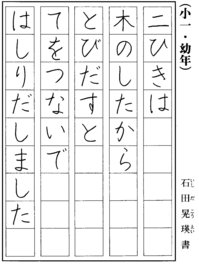 (小一・幼年)
二ひきは
木のしたから
とびだすと
てをつないで
はしりだしました
石田晃瑛書